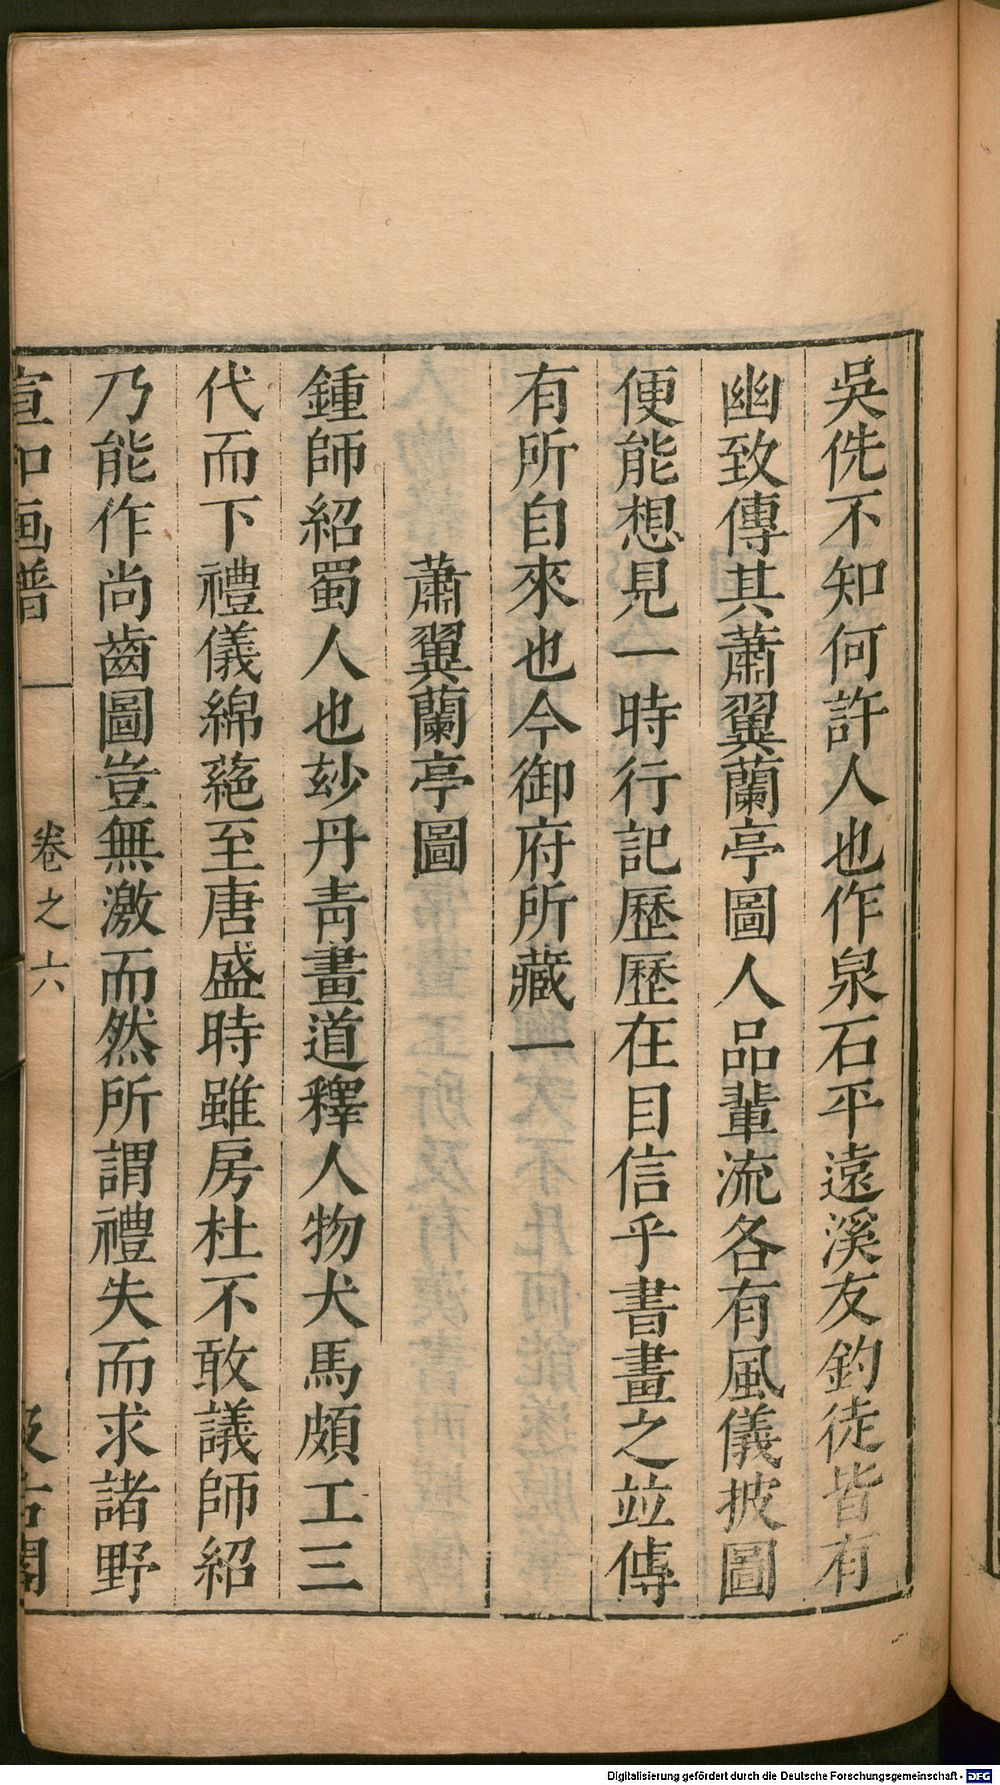 吳侁不知何許人也作泉石平遠溪友釣徒皆有
幽致傳其蕭翼蘭亭圖人品輩流各有風儀披圖
便能想見一時行記歷歷在目信乎書畫之竝傳
有所自來也今御府所藏一
蕭翼蘭亭圖
鍾師紹蜀人也玅丹靑畫道釋人物犬馬頗工三
代而下禮儀綿蕝至唐盛時雖房杜不敢議師紹
乃能作尚齒圖豈無激而然所謂禮失而求諸野
宣和画譜 卷之六 汲古閣
Digitalisierung gefördert durch die Deutsche Forschungsgemeinschaft - DFG